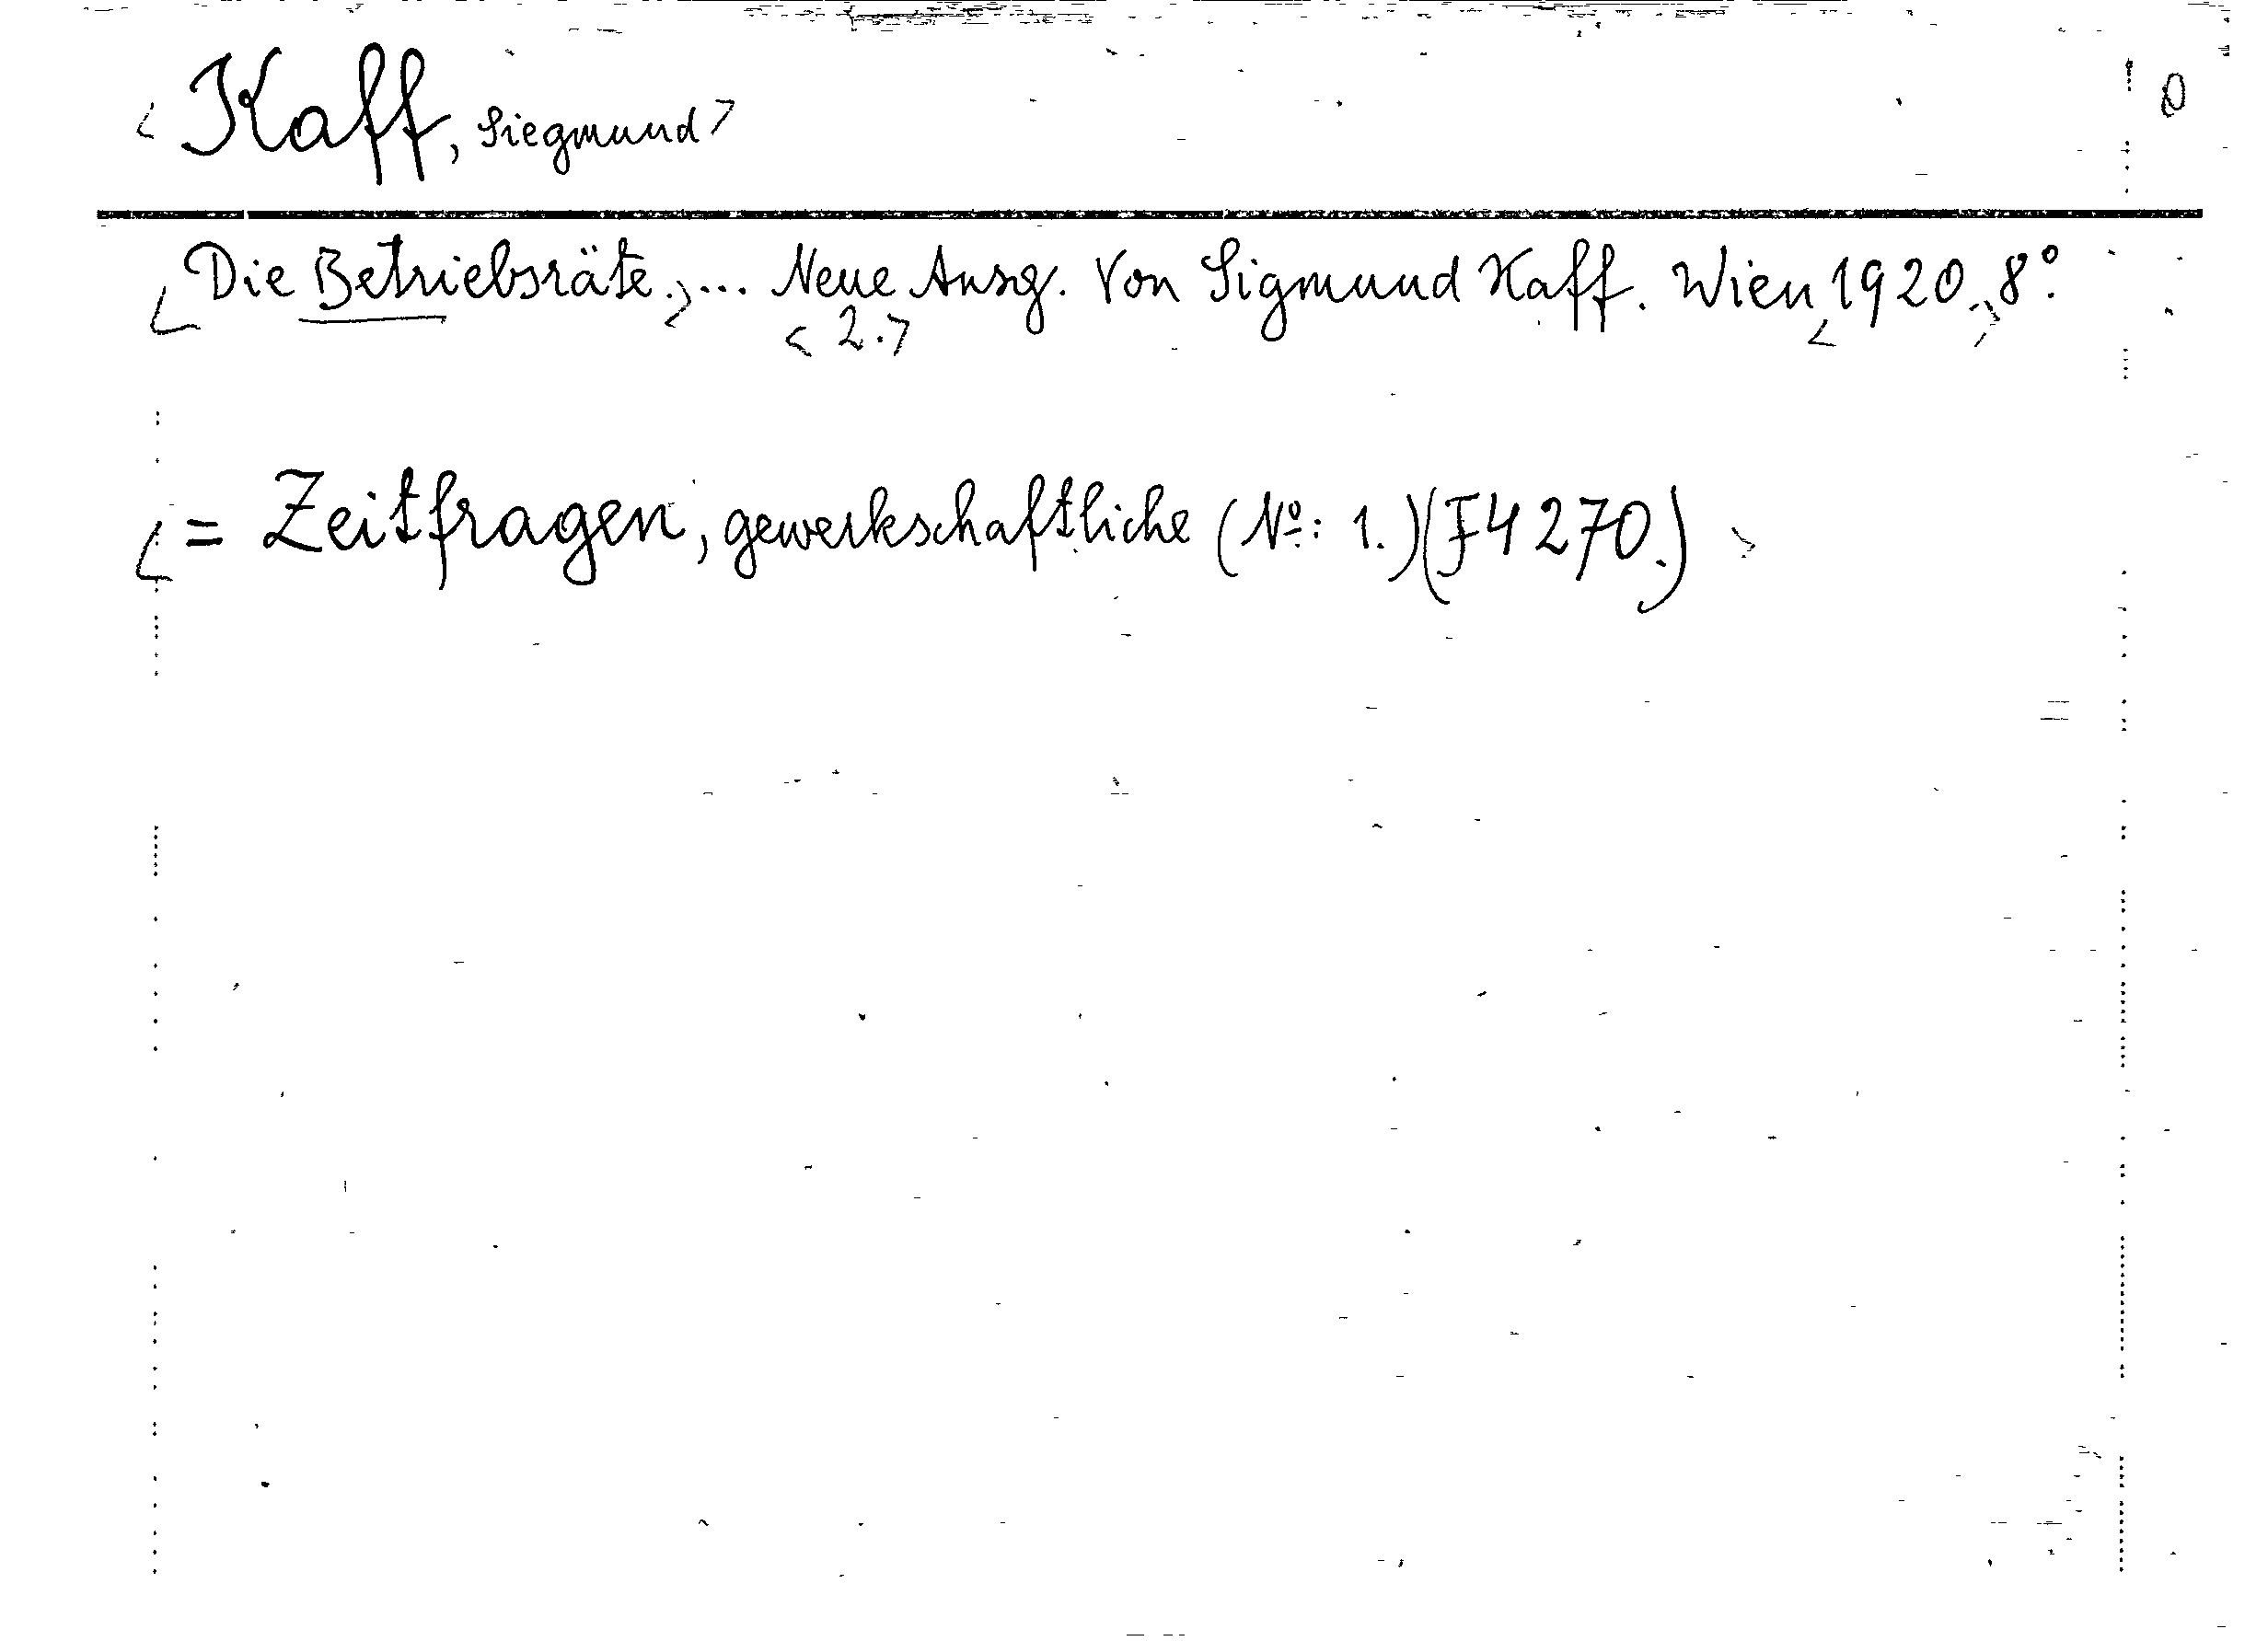 < Kaff, Siegmund > 0
< Die Betriebsräte.> ... Neue Ausg. Von Sigmund Kaff. Wien < 1920.,> 8°.
< 2. >
< = Zeitfragen, gewerkschaftliche (Nº: 1.) (F4270.) >